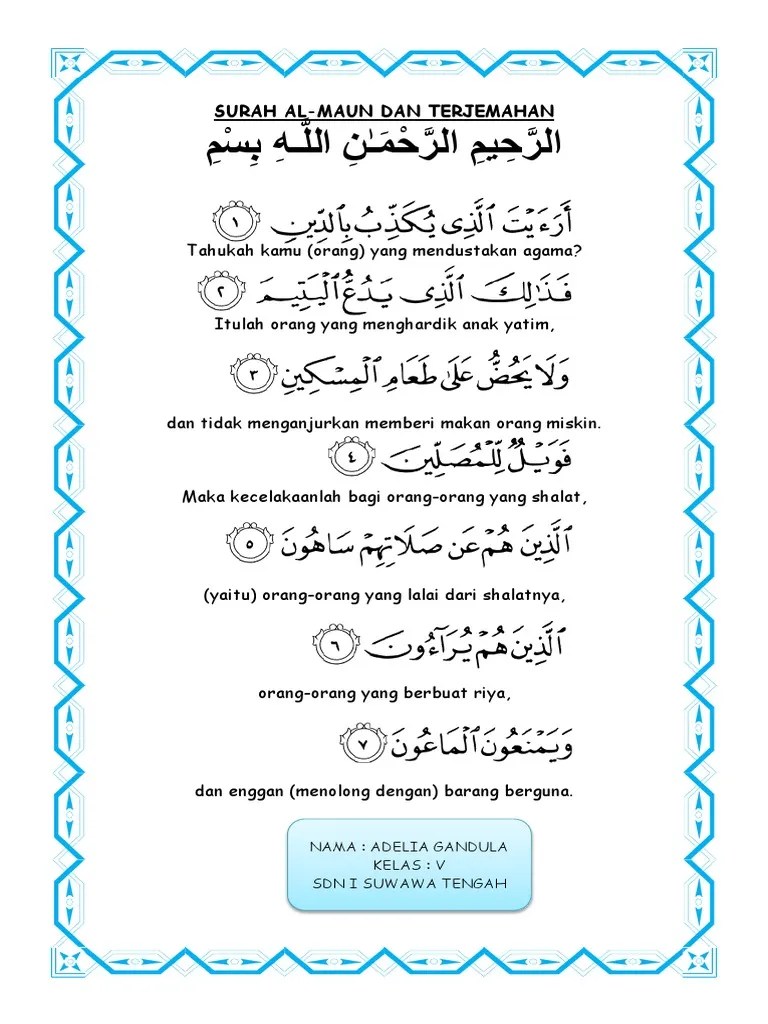 SURAH AL-MAUN DAN TERJEMAHAN
الرَّحِيمِ الرَّحْمَـٰنِ اللَّـهِ بِسْمِ
أَرَءَيْتَ ٱلَّذِى يُكَذِّبُ بِٱلدِّينِ ١
Tahukah kamu (orang) yang mendustakan agama?
فَذَٰلِكَ ٱلَّذِى يَدُعُّ ٱلْيَتِيمَ ٢
Itulah orang yang menghardik anak yatim,
وَلَا يَحُضُّ عَلَىٰ طَعَامِ ٱلْمِسْكِينِ ٣
dan tidak menganjurkan memberi makan orang miskin.
فَوَيْلٌ لِّلْمُصَلِّينَ ٤
Maka kecelakaanlah bagi orang-orang yang shalat,
ٱلَّذِينَ هُمْ عَن صَلَاتِهِمْ سَاهُونَ ٥
(yaitu) orang-orang yang lalai dari shalatnya,
ٱلَّذِينَ هُمْ يُرَآءُونَ ٦
orang-orang yang berbuat riya,
وَيَمْنَعُونَ ٱلْمَاعُونَ ٧
dan enggan (menolong dengan) barang berguna.
NAMA : ADELIA GANDULA
KELAS : V
SDN I SUWAWA TENGAH